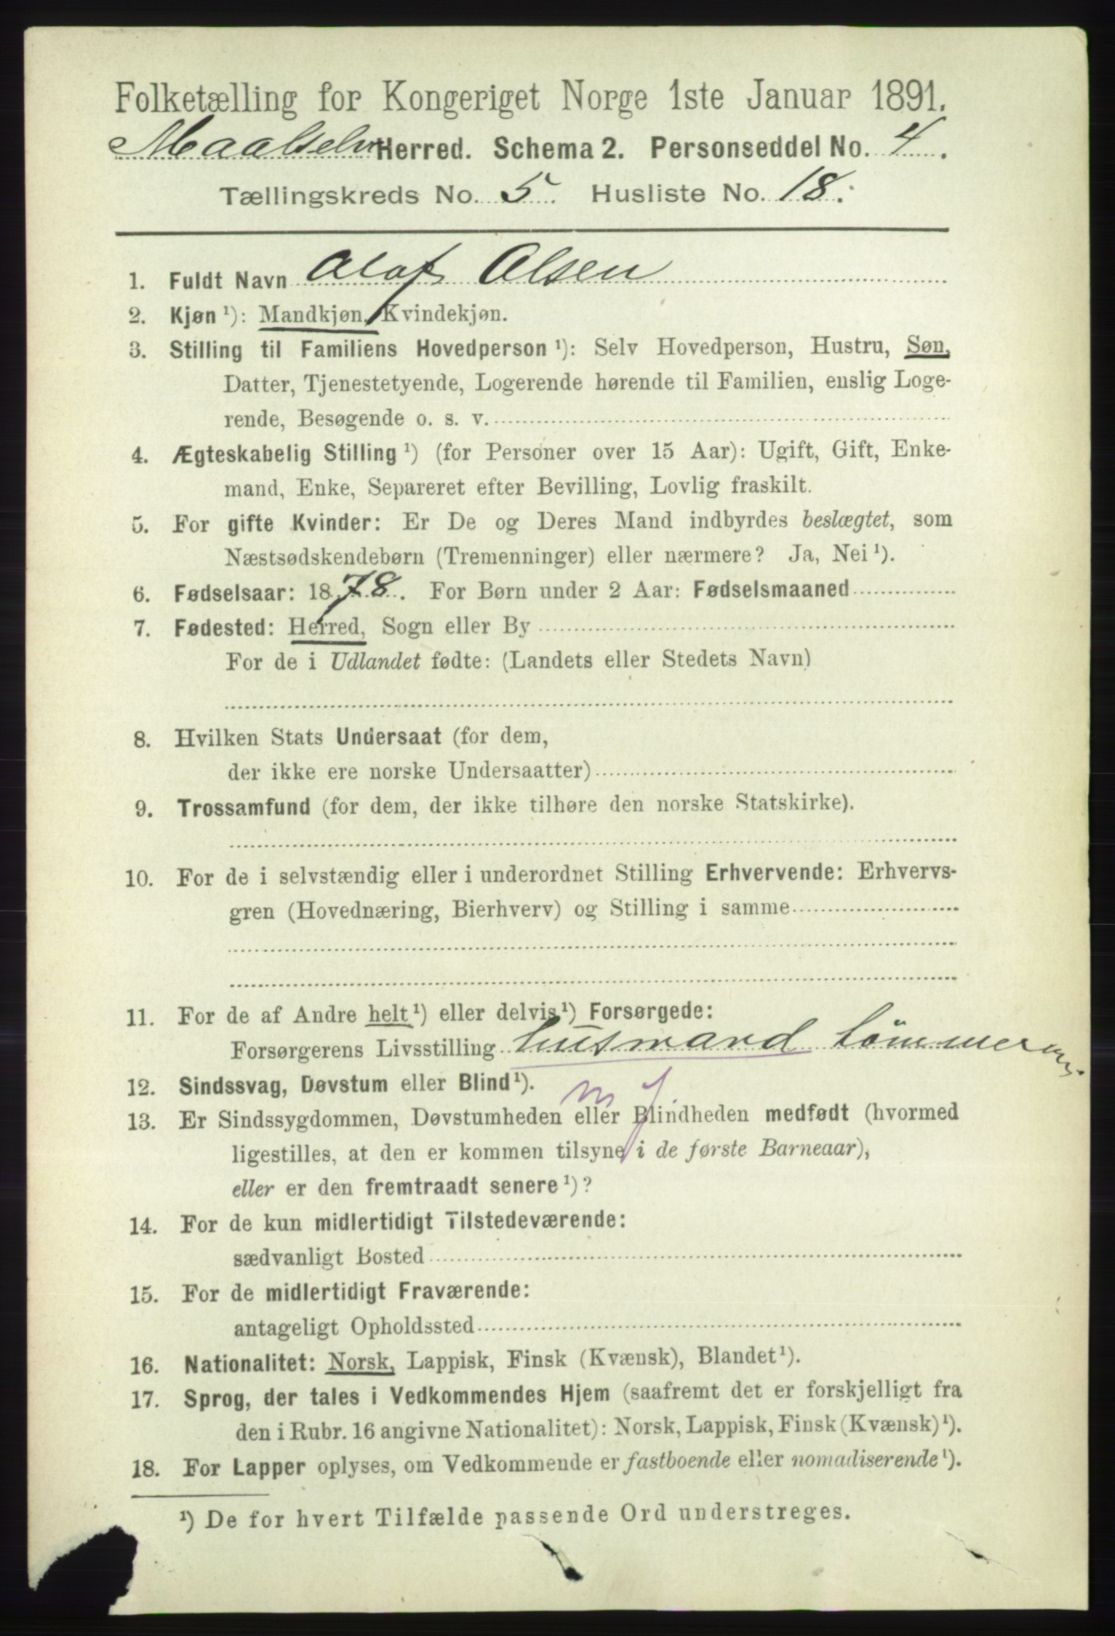 Folketælling for Kongeriget Norge 1ste Januar 1891.
Maalselv Herred. Schema 2. Personseddel No. 4.
Tællingskreds No. 5. Husliste No. 18.
1. Fuldt Navn Olaf Olsen
2. Kjøn ¹): Mandkjøn, Kvindekjøn.
3. Stilling til Familiens Hovedperson ¹): Selv Hovedperson, Hustru, Søn,
Datter, Tjenestetyende, Logerende hørende til Familien, enslig Loge-
rende, Besøgende o. s. v.
4. Ægteskabelig Stilling ¹) (for Personer over 15 Aar): Ugift, Gift, Enke-
mand, Enke, Separeret efter Bevilling, Lovlig fraskilt.
5. For gifte Kvinder: Er De og Deres Mand indbyrdes beslægtet, som
Næstsødskendebørn (Tremenninger) eller nærmere? Ja, Nei ¹).
6. Fødselsaar: 1878. For Børn under 2 Aar: Fødselsmaaned
7. Fødested: Herred, Sogn eller By
For de i Udlandet fødte: (Landets eller Stedets Navn)
8. Hvilken Stats Undersaat (for dem,
der ikke ere norske Undersaatter)
9. Trossamfund (for dem, der ikke tilhøre den norske Statskirke).
10. For de i selvstændig eller i underordnet Stilling Erhvervende: Erhvervs-
gren (Hovednæring, Bierhverv) og Stilling i samme
11. For de af Andre helt ¹) eller delvis ¹) Forsørgede:
Forsørgerens Livsstilling husmand
12. Sindssvag, Døvstum eller Blind ¹).
13. Er Sindssygdommen, Døvstumheden eller Blindheden medfødt (hvormed
ligestilles, at den er kommen tilsyne i de første Barneaar),
eller er den fremtraadt senere ¹)?
14. For de kun midlertidigt Tilstedeværende:
sædvanligt Bosted
15. For de midlertidigt Fraværende:
antageligt Opholdssted
16. Nationalitet: Norsk, Lappisk, Finsk (Kvænsk), Blandet ¹).
17. Sprog, der tales i Vedkommendes Hjem (saafremt det er forskjelligt fra
den i Rubr. 16 angivne Nationalitet): Norsk, Lappisk, Finsk (Kvænsk) ¹).
18. For Lapper oplyses, om Vedkommende er fastboende eller nomadiserende ¹).
¹) De for hvert Tilfælde passende Ord understreges.